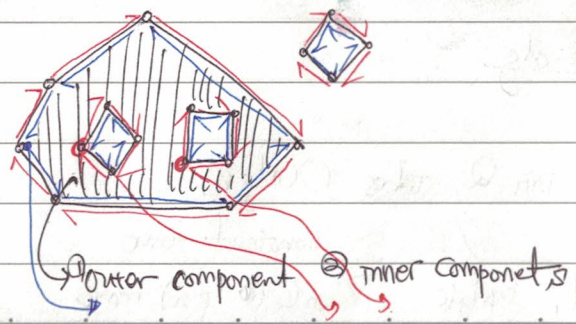 ① outer component ② inner componets